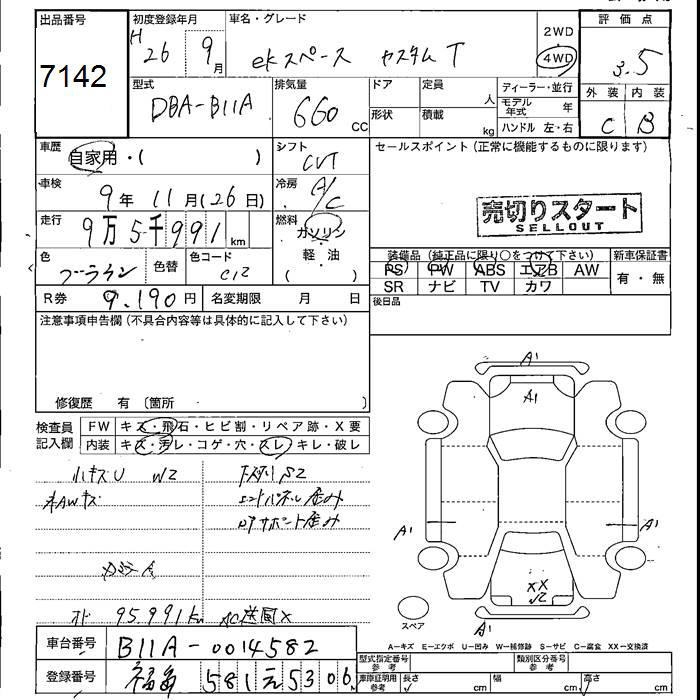 出品番号 初度登録年月 車名・グレード 2WD 評価点
7142 H26年9月 ekスペース カスタムT 4WD 3.5
型式 排気量 ドア 定員 ディーラー・並行 外装 内装
DBA-B11A 660 CC 形状 積載 人 kg モデル年式 年 ハンドル 左・右 C B
車歴 自家用・( ) シフト CVT セールスポイント(正常に機能するものに限ります)
車検 9年11月(26日) 冷房 A/C
売切りスタート
SELLOUT
走行 9万5千991km 燃料 ガソリン
軽・油
( )
装備品(純正品に限り○をつけ下さい) 新車保証書
色 色替 色コード C12 PS PW ABS エアB AW 有・無
SR ナビ TV カワ
R券 9.190円 名変期限 月 日 後日品
注意事項申告欄(不具合内容等は具体的に記入して下さい)
修復歴 有 〔箇所 〕
検査員記入欄 FW キズ・飛石・ヒビ割・リペア跡・X要
内装 キズ・汚レ・コゲ・穴・スレ・キレ・破レ
小キズU W2 S2
AWキズ エンドパネル歪み
サポート歪み
A1
A1
A1 A1
XX
A1
スペア
95.991km AC送風X
A-キズ E-エクボ U-凹み W-補修跡 S-サビ C-腐食 XX-交換済
車台番号 B11A-0014582 型式指定番号 参考 類別区分番号 参考
登録番号 581 5306 車庫証明用 参考 長さ cm 幅 cm 高さ cm